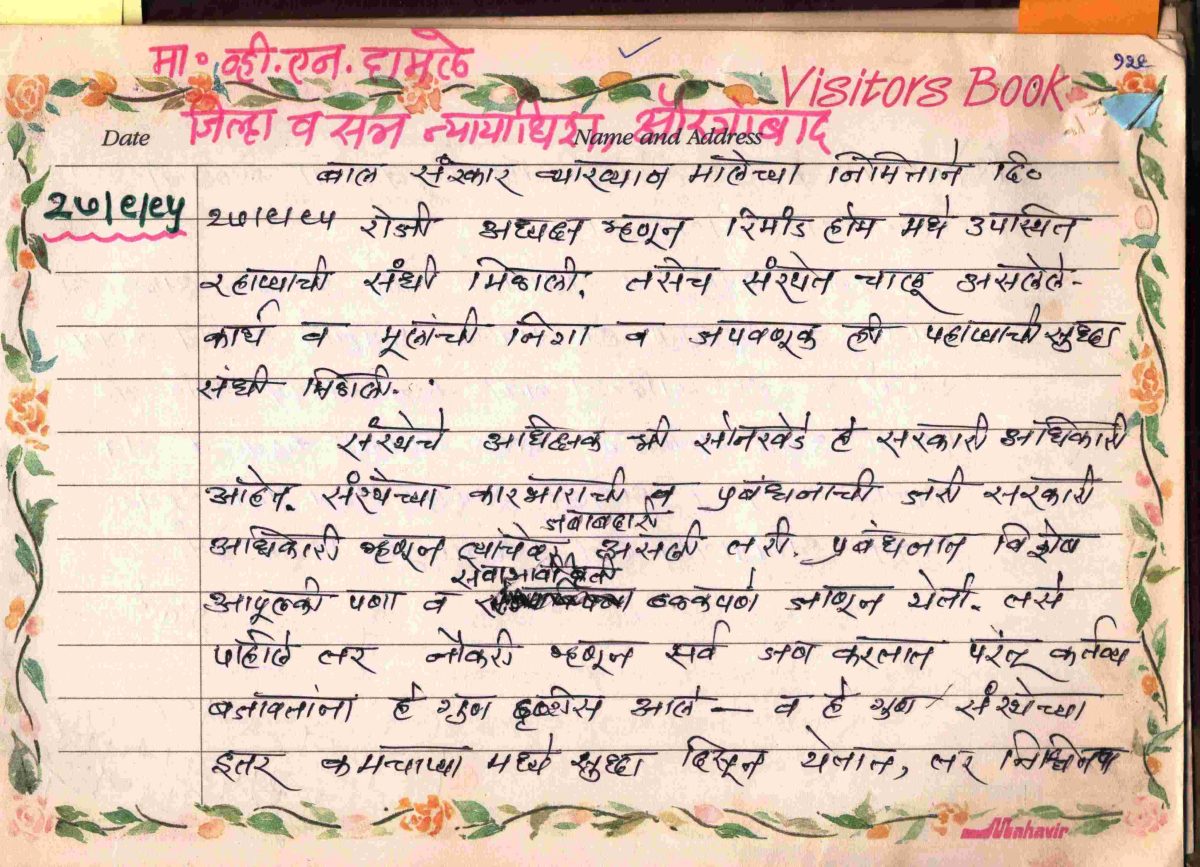 १२९
मा॰ व्ही.एन. दामले
Visitors Book
जिल्हा व सत्र न्यायाधिश, औरंगाबाद
Date Name and Address
बाल संस्कार व्याख्यान मालेच्या निमित्ताने दि॰
२७/९/९५
२७/९/९५ रोजी अध्यक्ष म्हणून रिमांड होम मधे उपस्थित
रहाण्याची संधी मिळाली. तसेच संस्थेत चालू असलेले
कार्य व मूलांची निगा व जपवणूक ही पहाण्याची सुध्दा
संधी मिळाली.
संस्थेचे अधिक्षक श्री सोनखेडे हे सरकारी अधिकारी
आहेत. संस्थेच्या कारभाराची व प्रबंधनाची जरी सरकारी
जबाबदारी
अधिकारी म्हणून त्यांचेवर असली तरी. प्रबंधनात विशेष
सेवाभावी वृत्ती
आपूलकी पणा व ठळकपणे जाणून येती. तसे
पाहीले तर नौकरी म्हणून सर्व जण करतात परंतू कर्तव्य
बजावतांना हे गुण दृष्टीस आले — व हे गुण संस्थेच्या
इतर कर्मचाऱ्या मध्ये सुध्दा दिसून येतात, तर निश्चितच
Mahavir